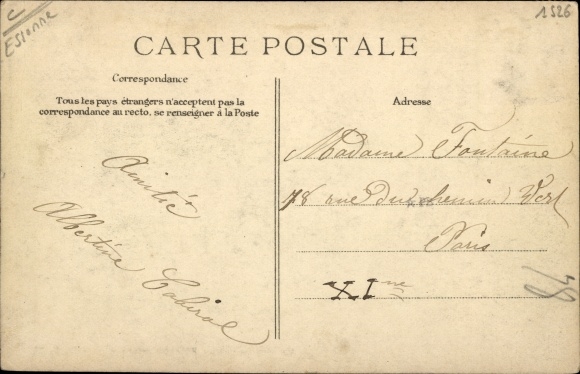 C
Essonne
1526
CARTE POSTALE
Correspondance
Tous les pays étrangers n'acceptent pas la
correspondance au recto, se renseigner à la Poste
Amitié
Albertine Cabirol
Adresse
Madame Fontaine
78 rue du chemin Vert
Paris
XIme